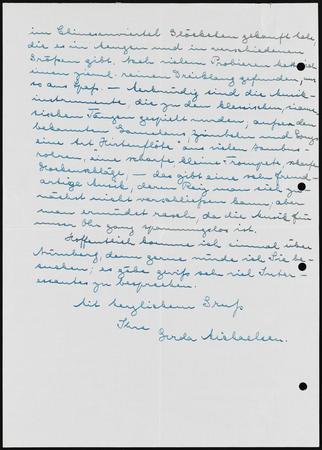 im Chinesenviertel Glöckchen gekauft habe,
die es in Mengen und in verschiedenen
Größen gibt. Nach vielem Probieren habe ich
einen zieml. reinen Dreiklang gefunden, nur
so aus Spaß. — Merkwürdig sind die Musik-
instrumente, die zu den klassischen, siame-
sischen Tänzen gespielt wurden; außer den
bekannten Gamelans, Zimbeln und Gongs
eine Art Hirtenflöte aus vielen Bambus-
rohren, eine scharfe, kleine Trompete, scharfe
Trockenschläge, — das gibt eine sehr fremd-
artige Musik, deren Reiz man sich zu-
nächst nicht verschließen kann; aber
man ermüdet rasch, da die Musik für
unser Ohr ganz spannungslos ist.
Hoffentlich komme ich einmal über
Nürnberg, denn gerne würde ich Sie be-
suchen; es gäbe gewiß sehr viel Inter-
essantes zu besprechen.
Mit herzlichem Gruß
Ihre
Gerda Michaelsen.